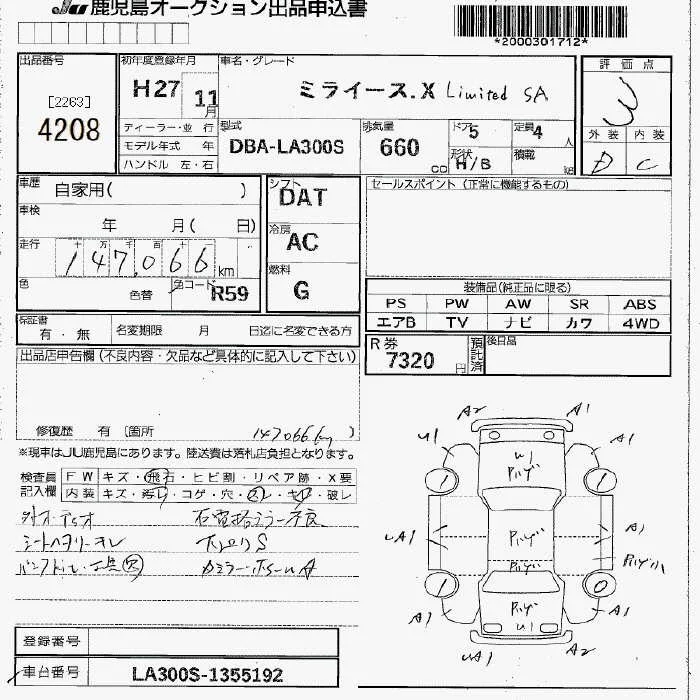 JU 鹿児島オークション出品申込書
*2000301712*
出品番号
[2263]
4208
初年度登録年月
H27 11月
車名・グレード
ミライース.X Limited SA
評価点
3
外装 内装
D C
ディーラー・並行
モデル年式 年
ハンドル 左・右
型式
DBA-LA300S
排気量
660 cc
ドア 5
形状 H/B
定員 4 人
積載 kg
車歴
自家用( )
車検
年 月( 日)
走行
十 万 千 百 十 一
147,066 km
色
色替
色コード R59
シフト
DAT
冷房
AC
燃料
G
セールスポイント (正常に機能するもの)
装備品(純正品に限る)
PS PW AW SR ABS
エアB TV ナビ カワ 4WD
保証書
有・無
名変期限 月 日迄に名変できる方
R券
7320 円
預託済
後日品
出品店申告欄(不良内容・欠品など具体的に記入して下さい)
修復歴 有 〔箇所 147066km 〕
※現車はJU鹿児島にあります。陸送費は落札店負担となります。
検査員記入欄
FW キズ・飛石・ヒビ割・リペア跡・X要
内装 キズ・汚レ・コゲ・穴・スレ・キレ・破レ
社外オーディオ
シートヘタリ
下廻りS
A2 A1
U1 A1
U1
1 1
UA1 A1
1 0
A1 A1
U1
UA1 A2
登録番号
車台番号
LA300S-1355192